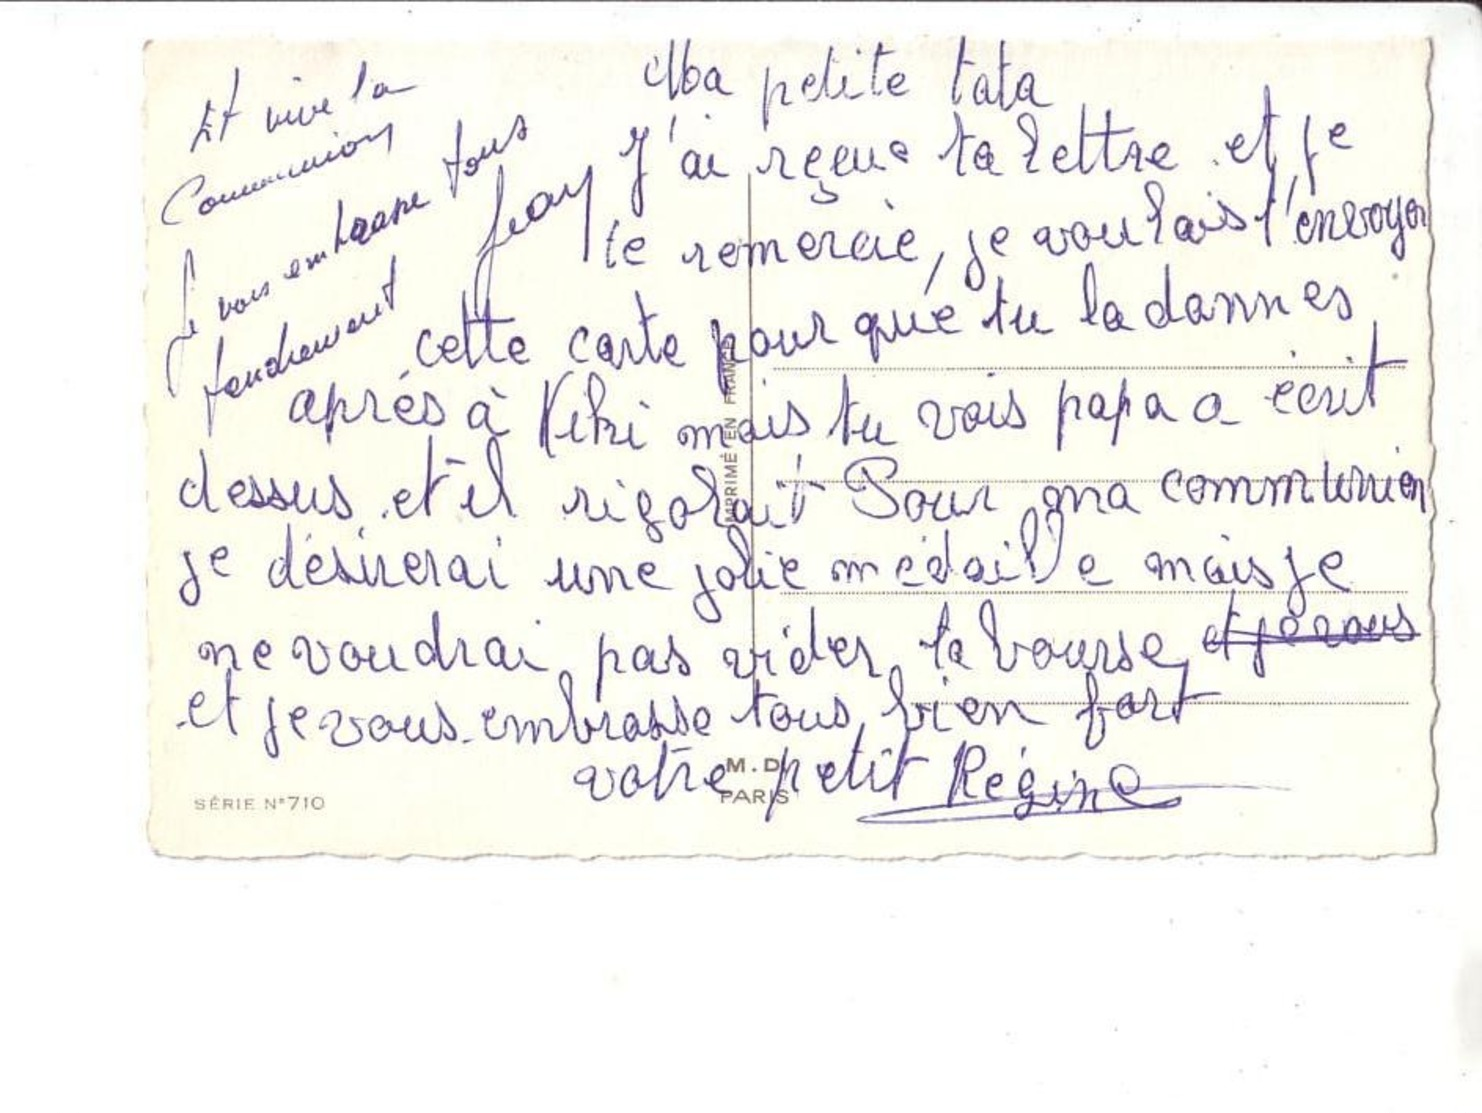 Et vive la
Communion
Je vous embrasse tous
tendrement Jean
Ma petite tata
J'ai reçue ta lettre et je
te remercie, je voulais t'envoyer
cette carte pour que tu la donnes
après à Kiki mais tu vois papa a écrit
dessus et il rigolait Pour ma communion
je désirerai une jolie médaille mais je
ne voudrai pas vider ta bourse, et je vous
et je vous embrasse tous bien fort
votre petit Régine
IMPRIMÉ EN FRANCE
M.D.
PARIS
SÉRIE N°710